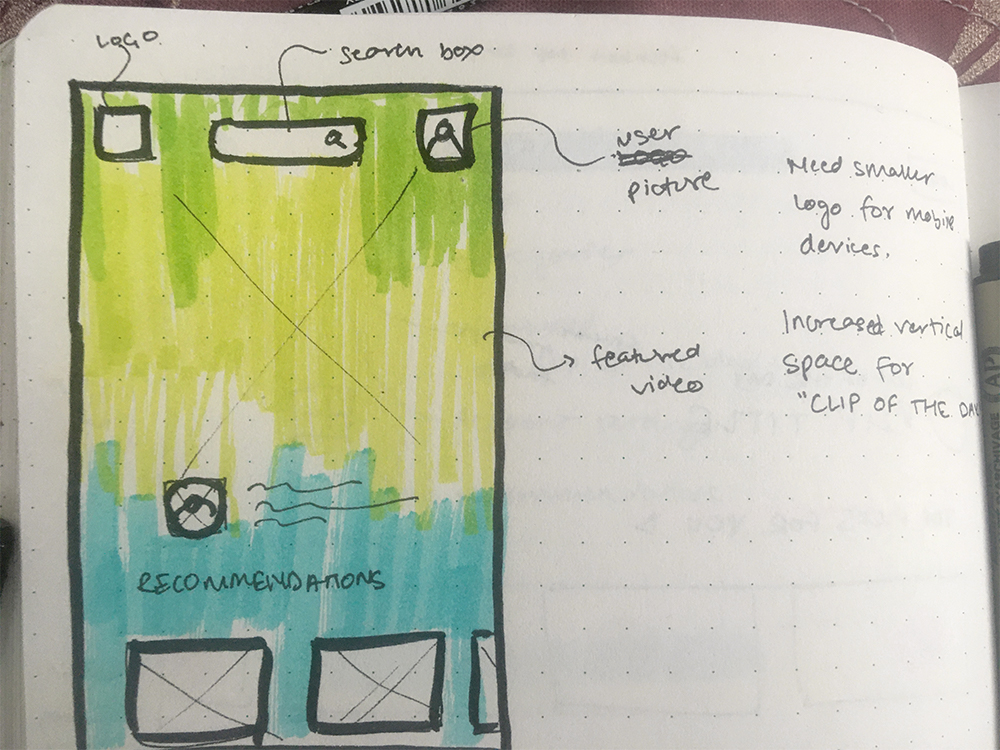 LOGO
search box
user
picture
Need smaller
logo for mobile
devices.
featured
video
Increased vertical
space for
"CLIP OF THE
RECOMMENDATIONS